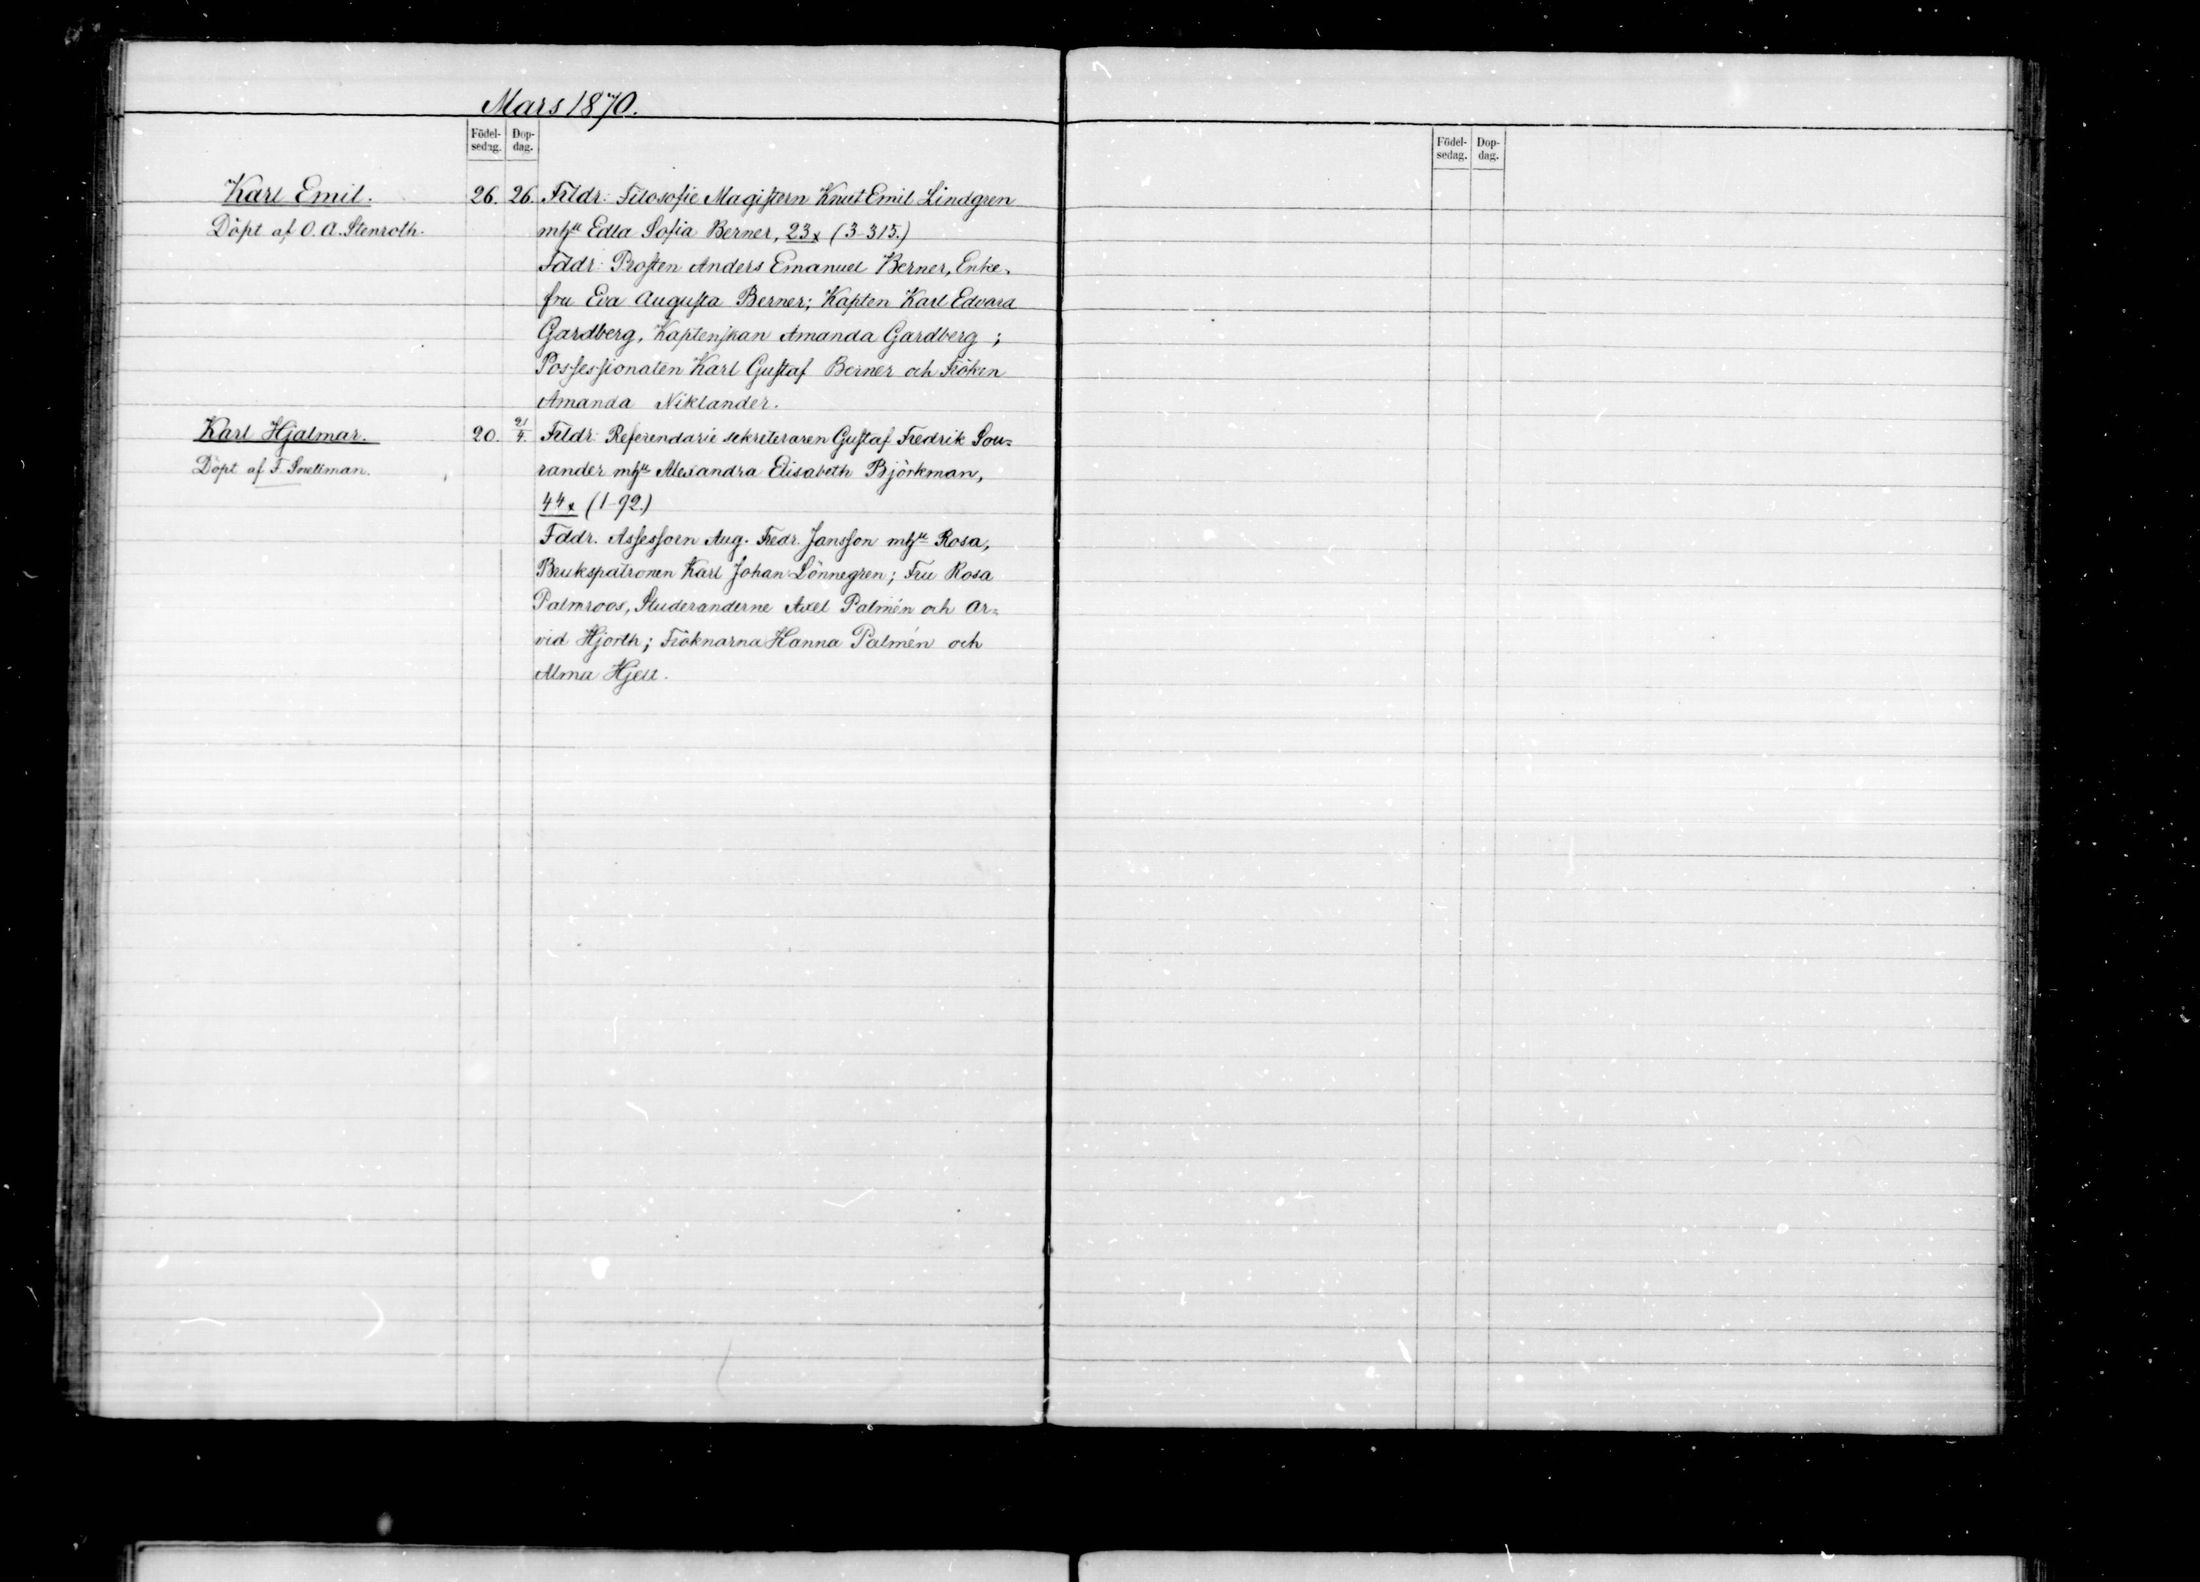 Mars 1870.
Födel-
sedag.
Dop-
dag.
Födel-
sedag.
Dop-
dag.
Karl Emil. 26. 26. Frldr: Filosofie Magistern Knut Emil Lindgren
Döpt af O. A. Stenroth. mhu Edla Sofia Berner, 23x (3-315.)
Fddr: Prosten Anders Emanuel Berner, Enke-
fru Eva Augusta Berner; Kapten Karl Edvard
Gardberg, Kaptenskan Amanda Gardberg;
Possessionaten Karl Gustaf Berner och Fröken
Amanda Niklander.
Karl Hjalmar. 20. 21/4. Frldr: Referendarie sekreteraren Gustaf Fredrik Sou=
Döpt af F. Snellman. rander mhu Alexandra Elisabeth Björkman,
44x (1-92.)
Fddr. Assessorn Aug. Fredr. Jansson mhu Rosa,
Brukspatronen Karl Johan Lönnegren; Fru Rosa
Palmroos, Studeranderne Axel Palmén och Ar=
vid Hjorth; Fröknarna Hanna Palmén och
Alma Hjelt.